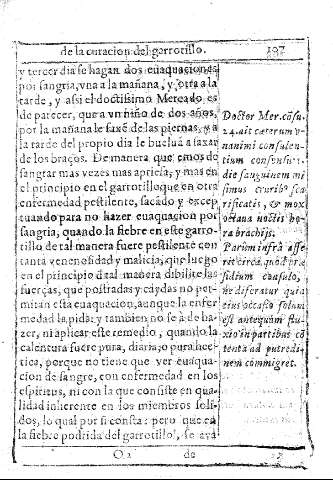 de la curacion del garrotillo. 107
y tercer dia se hagan dos euaquaciones
por sangria, vna a la mañana, y otra a la
tarde, y assi el doctissimo Mercado es
de parecer, que a vn niño de dos años,
por la mañana le saxē de las piernas, y a
la tarde del propio dia le bueluā a saxar
de los braços. De manera que emos de
sangrar mas vezes mas apriesa, y mas en
el principio en el garrotillo que en otra
enfermedad pestilente, sacādo y excep
tuando para no hazer euaquacion por
sangria, quando la fiebre en este garro-
tillo de tal manera fuere pestilente con
tanta venenosidad y malicia, que luego
en el principio d tal manera dibilite las
fuerças, que postradas y caydas no per-
mitan esta euaquacion, aunque la enfer
medad la pida: y tambien no se à de ha-
zer, ni aplicar este remedio, quando la
calentura fuere pura, diaria, o pura hec-
tica, porque no tiene que ver euaqua-
cion de sangre, con enfermedad en los
espiritus, ni con la que consiste en qua-
lidad inherente en los miembros soli-
dos, lo qual por si consta: pero que en
la fiebre podrida del garrotillo, se aya
Doctor Mer. cōsu.
24. ait cæterum v-
nanimi consulen-
tium consensu
die sanguinem mi
simus cruribꝰ sca
rificatis, & mox
octaua noctis ho-
ra brachijs.
Parum infrà asse
rit circa quod præ
sidium consulo,
ne diferatur quia
eius occasio solum
est antequàm flu-
xio in partibus cō
tenta ad putredi-
nem commigret.
O 2 de